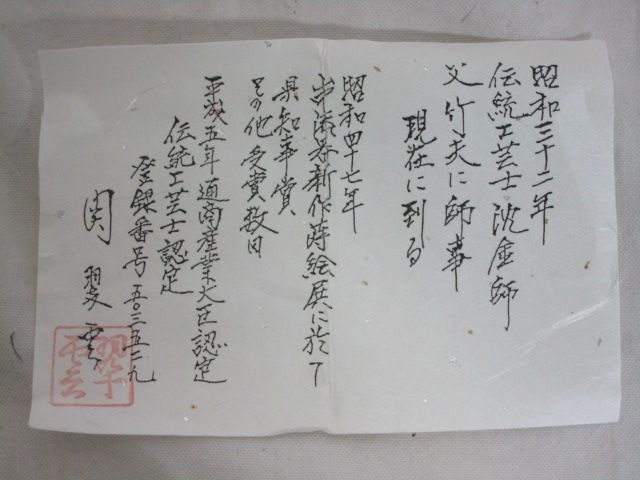 昭和三十二年
伝統工芸士沈金師
父竹夫に師事
現在に到る
昭和四十七年
漆器新作蒔絵展に於て
県知事賞
その他受賞数回
平成五年通商産業大臣認定
伝統工芸士認定
登録番号 五〇三五二九
関 翠雲
翠雲